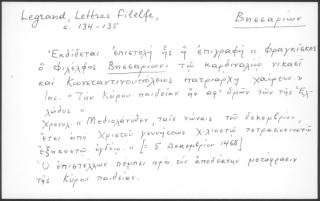 Legrand, Lettres Filelfe, Βησσαρίων
σ. 134-135
Ἐκδίδεται ἐπιστολή ἧς ἡ ἐπιγραφή « φραγκίσκος
ὁ φιλέλφος Βησσαρίωνι τῷ καρδιναλίῳ νικαεῖ
καὶ Κωνσταντινουπόλεως πατριάρχῃ χαίρειν. »
Inc. « Τὴν Κύρου παιδείαν ἣν ἀφ' ὑμῶν τῶν τῆς Ἑλ-
λάδος »
Χρονολ. « Μεδιολανόθεν, ταῖς νώναις τοῦ δεκεμβρίου,
ἔτει ἀπὸ Χριστοῦ γεννήσεως χιλιοστῷ τετρακοσιοστῷ
ἑξηκοστῷ ὀγδόῳ. » [= 5 Δεκεμβρίου 1468]
Ὁ ἐπιστέλλων πέμπει πρὸς τὸν ἀποδέκτην μετάφρασιν
τῆς Κύρου παιδείας.